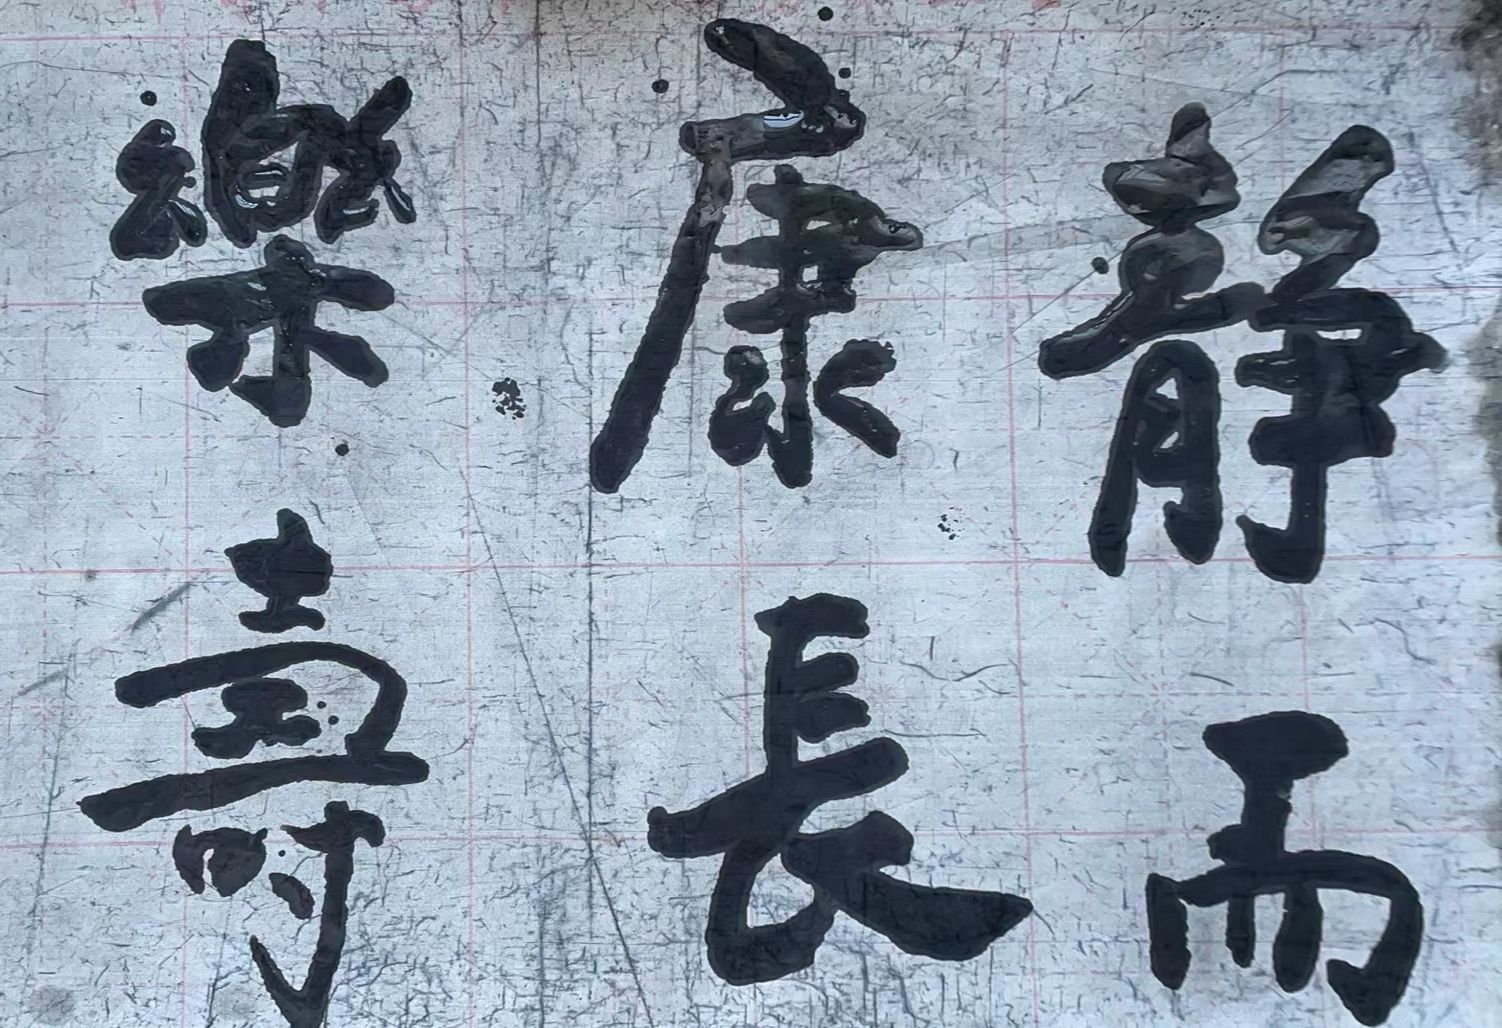 靜而
康長
樂壽